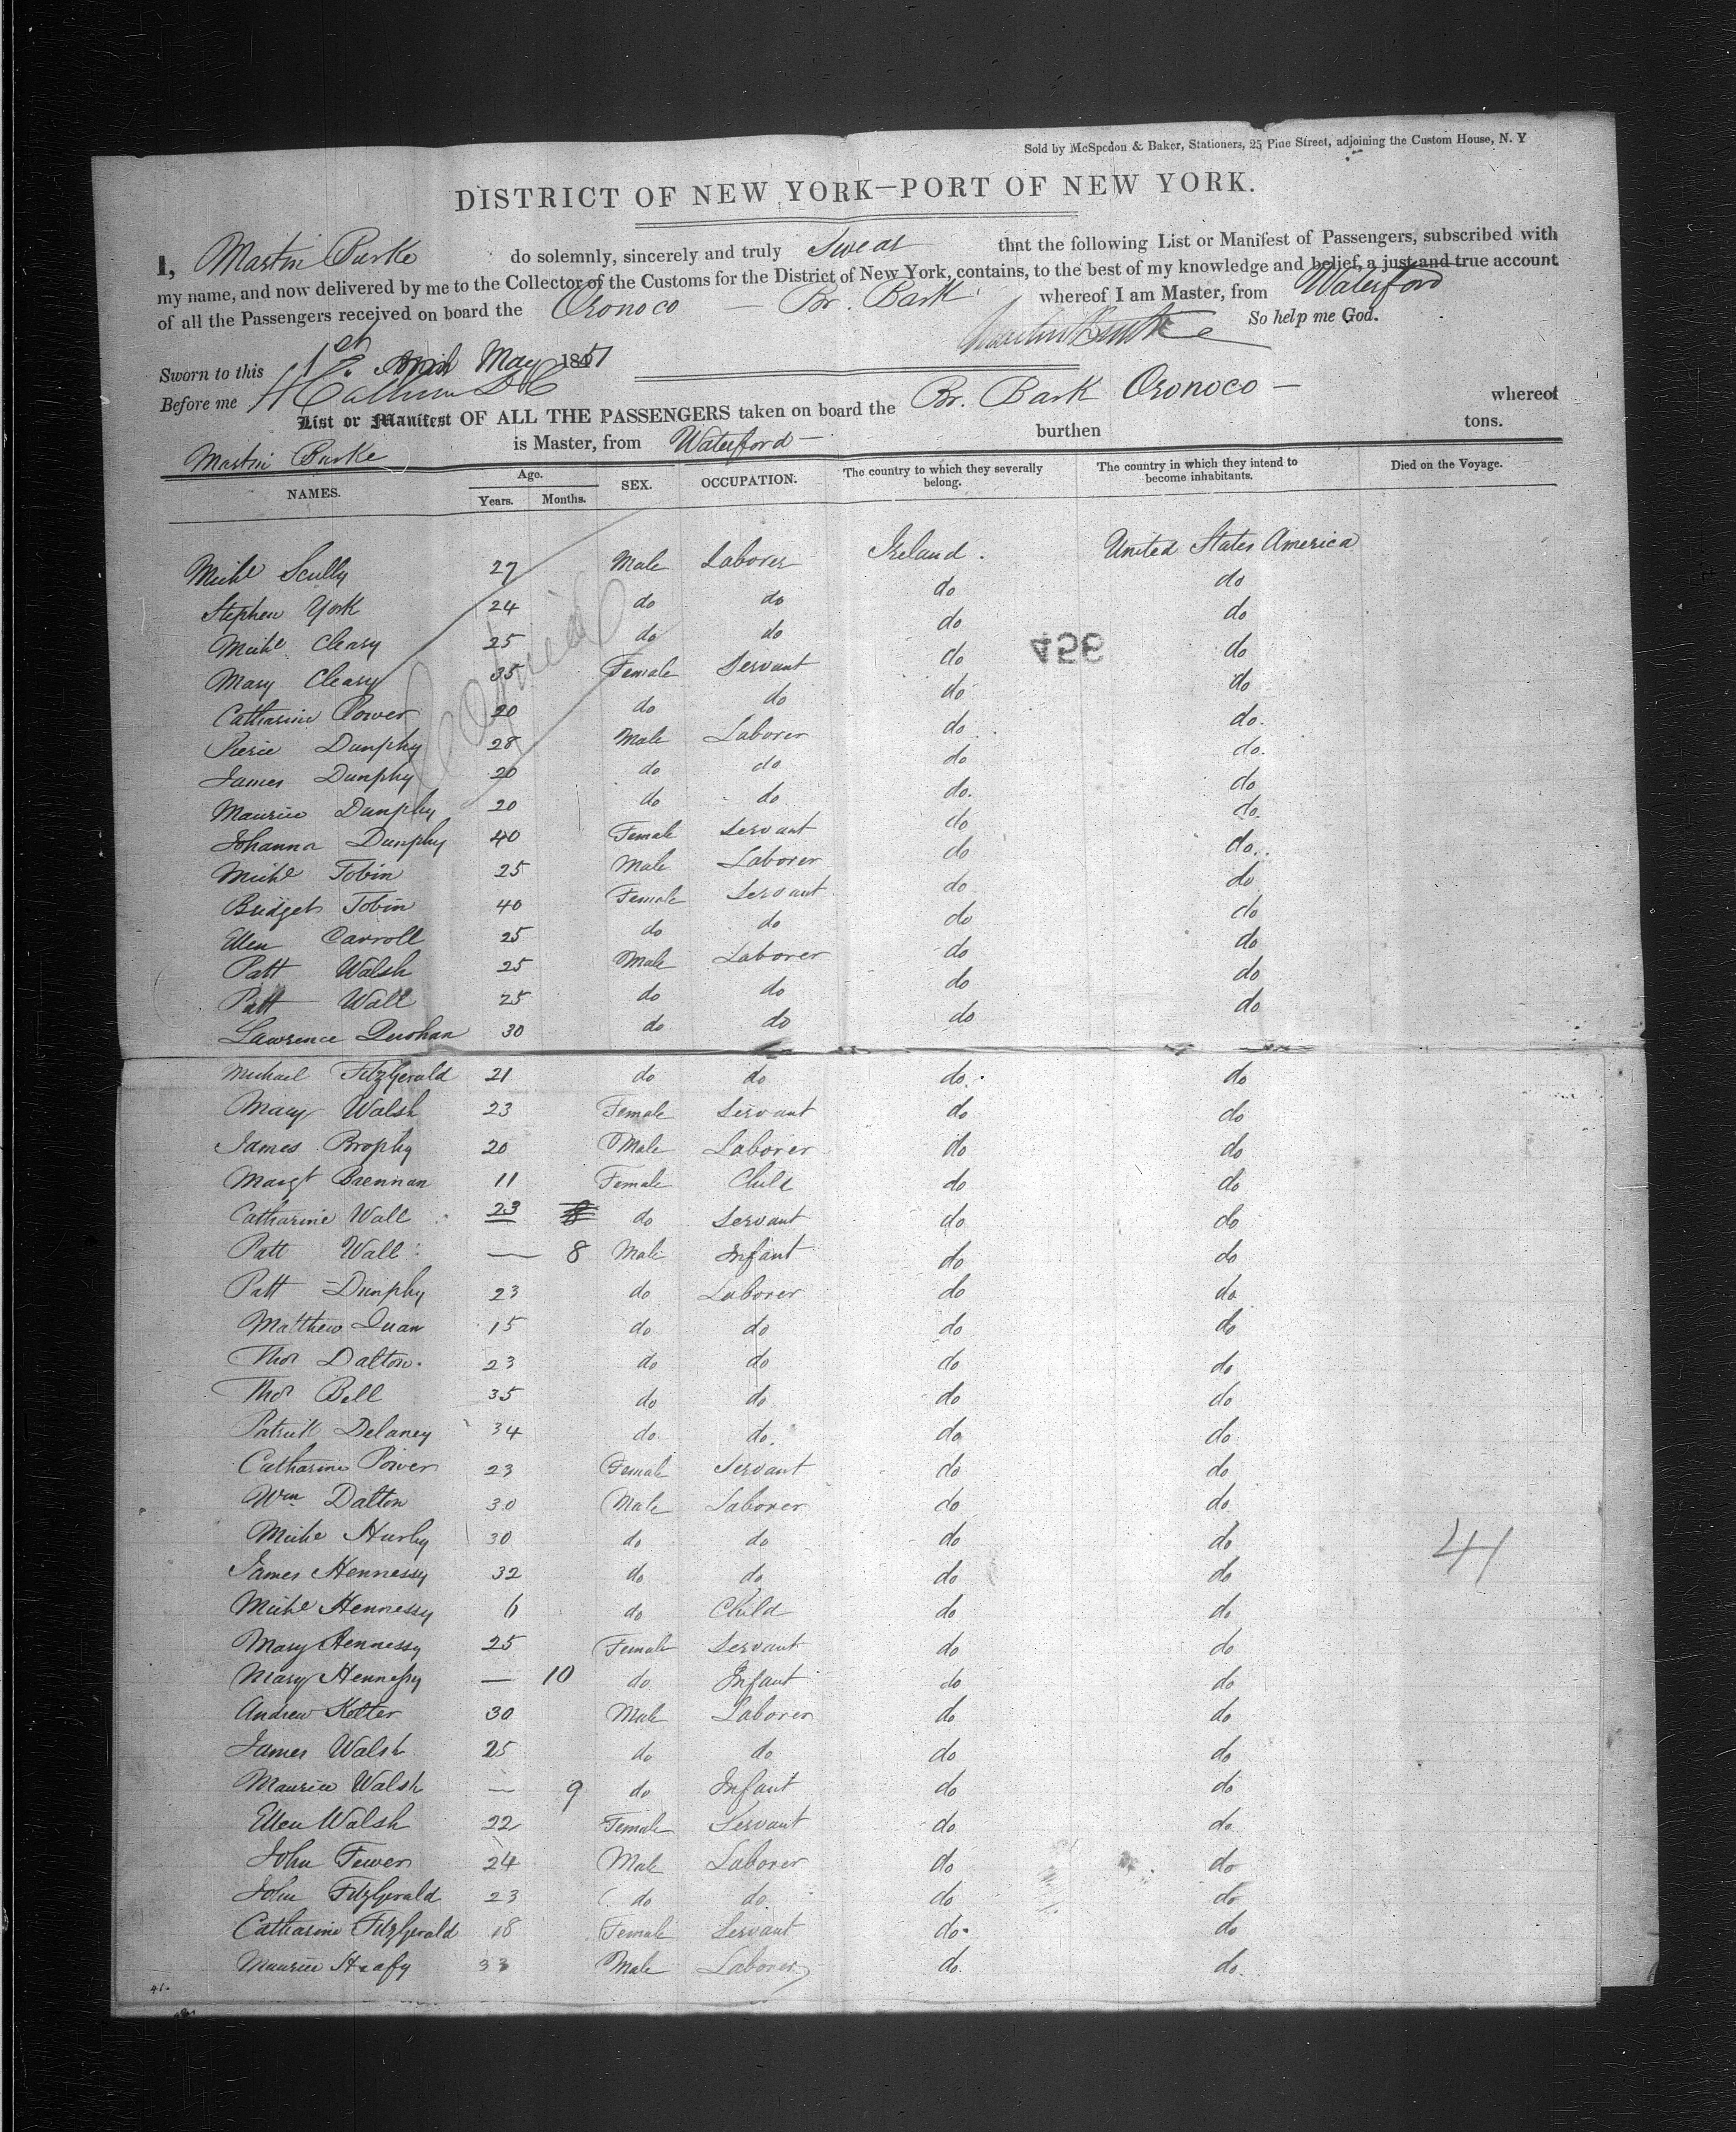 Sold by McSpedon & Baker, Stationers, 25 Pine Street, adjoining the Custom House, N. Y
DISTRICT OF NEW YORK—PORT OF NEW YORK.
I, Martin Burke do solemnly, sincerely and truly Swear that the following List or Manifest of Passengers, subscribed with
my name, and now delivered by me to the Collector of the Customs for the District of New York, contains, to the best of my knowledge and belief, a just and true account
of all the Passengers received on board the Oronoco — Br. Bark whereof I am Master, from Waterford
Martin Burke So help me God.
Sworn to this 1st April May 1851
Before me
List or Manifest OF ALL THE PASSENGERS taken on board the Br. Bark Oronoco — whereof
Martin Burke is Master, from Waterford — burthen tons.
NAMES. Age. Years. Months. SEX. OCCUPATION. The country to which they severally belong. The country in which they intend to become inhabitants. Died on the Voyage.
Michl Scully 27 Male Laborer Ireland. United States America
Stephen York 24 do do do do
Michl Cleary 25 do do do do
456
Mary Cleary 35 Female Servant do do
Catharine Power 20 do do do do
Pierce Dunphy 28 Male Laborer do do.
James Dunphy 20 do do do do.
Maurice Dunphy 20 do do do. do
Johanna Dunphy 40 Female Servant do do.
Michl Tobin 25 Male Laborer do do.
Bridget Tobin 40 Female Servant do do
Ellen Carroll 25 do do do do
Patt Walsh 25 Male Laborer do do
Patt Wall 25 do do do do
Lawrence 30 do do do do
Michael FitzGerald 21 do do do. do
Mary Walsh 23 Female Servant do do
James Brophy 20 Male Laborer do do
Margt Brennan 11 Female Child do do
Catharine Wall 23 8 do Servant do do
Patt Wall — 8 Male Infant do do
Patt Dunphy 23 do Laborer do do
Matthew Quan 15 do do do do
Thos Dalton. 23 do do do do
Thos Bell 35 do do do do
Patrick Delaney 34 do do. do do
Catharine Power 23 Female Servant do do
Wm Dalton 30 Male Laborer do do
Michl Hurly 30 do do do do
41
James Hennessy 32 do do do do
Michl Hennessy 6 do Child do do
Mary Hennessy 25 Female Servant do do
Mary Hennessy — 10 do Infant do do
Andrew Kotter 30 Male Laborer do do
James Walsh 25 do do do do
Maurice Walsh — 9 do Infant do do
Ellen Walsh 22 Female Servant do do
John Fewer 24 Male Laborer do do
John FitzGerald 23 do do do do
Catharine FitzGerald 18 Female Servant do do
Maurice Heafy 33 Male Laborer do. do.
41.